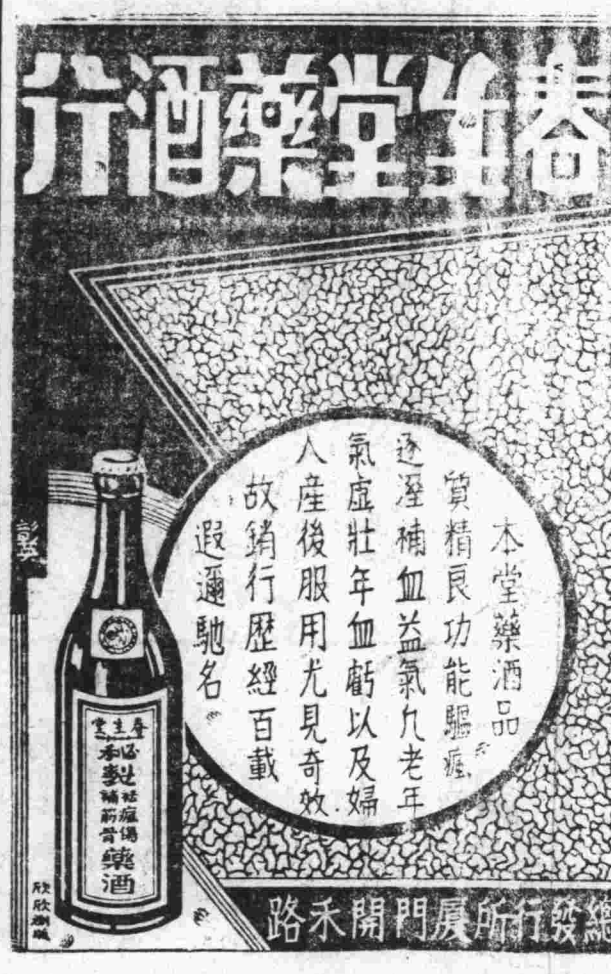 春生堂藥酒行
本堂藥酒品
質精良功能驅瘋
逐溼補血益氣凢老年
氣虛壯年血虧以及婦
人產後服用尤見奇效
故銷行歷經百載
遐邇馳名
春生堂
祛瘋傷
補筋骨
藥酒
總發行所厦門開禾路